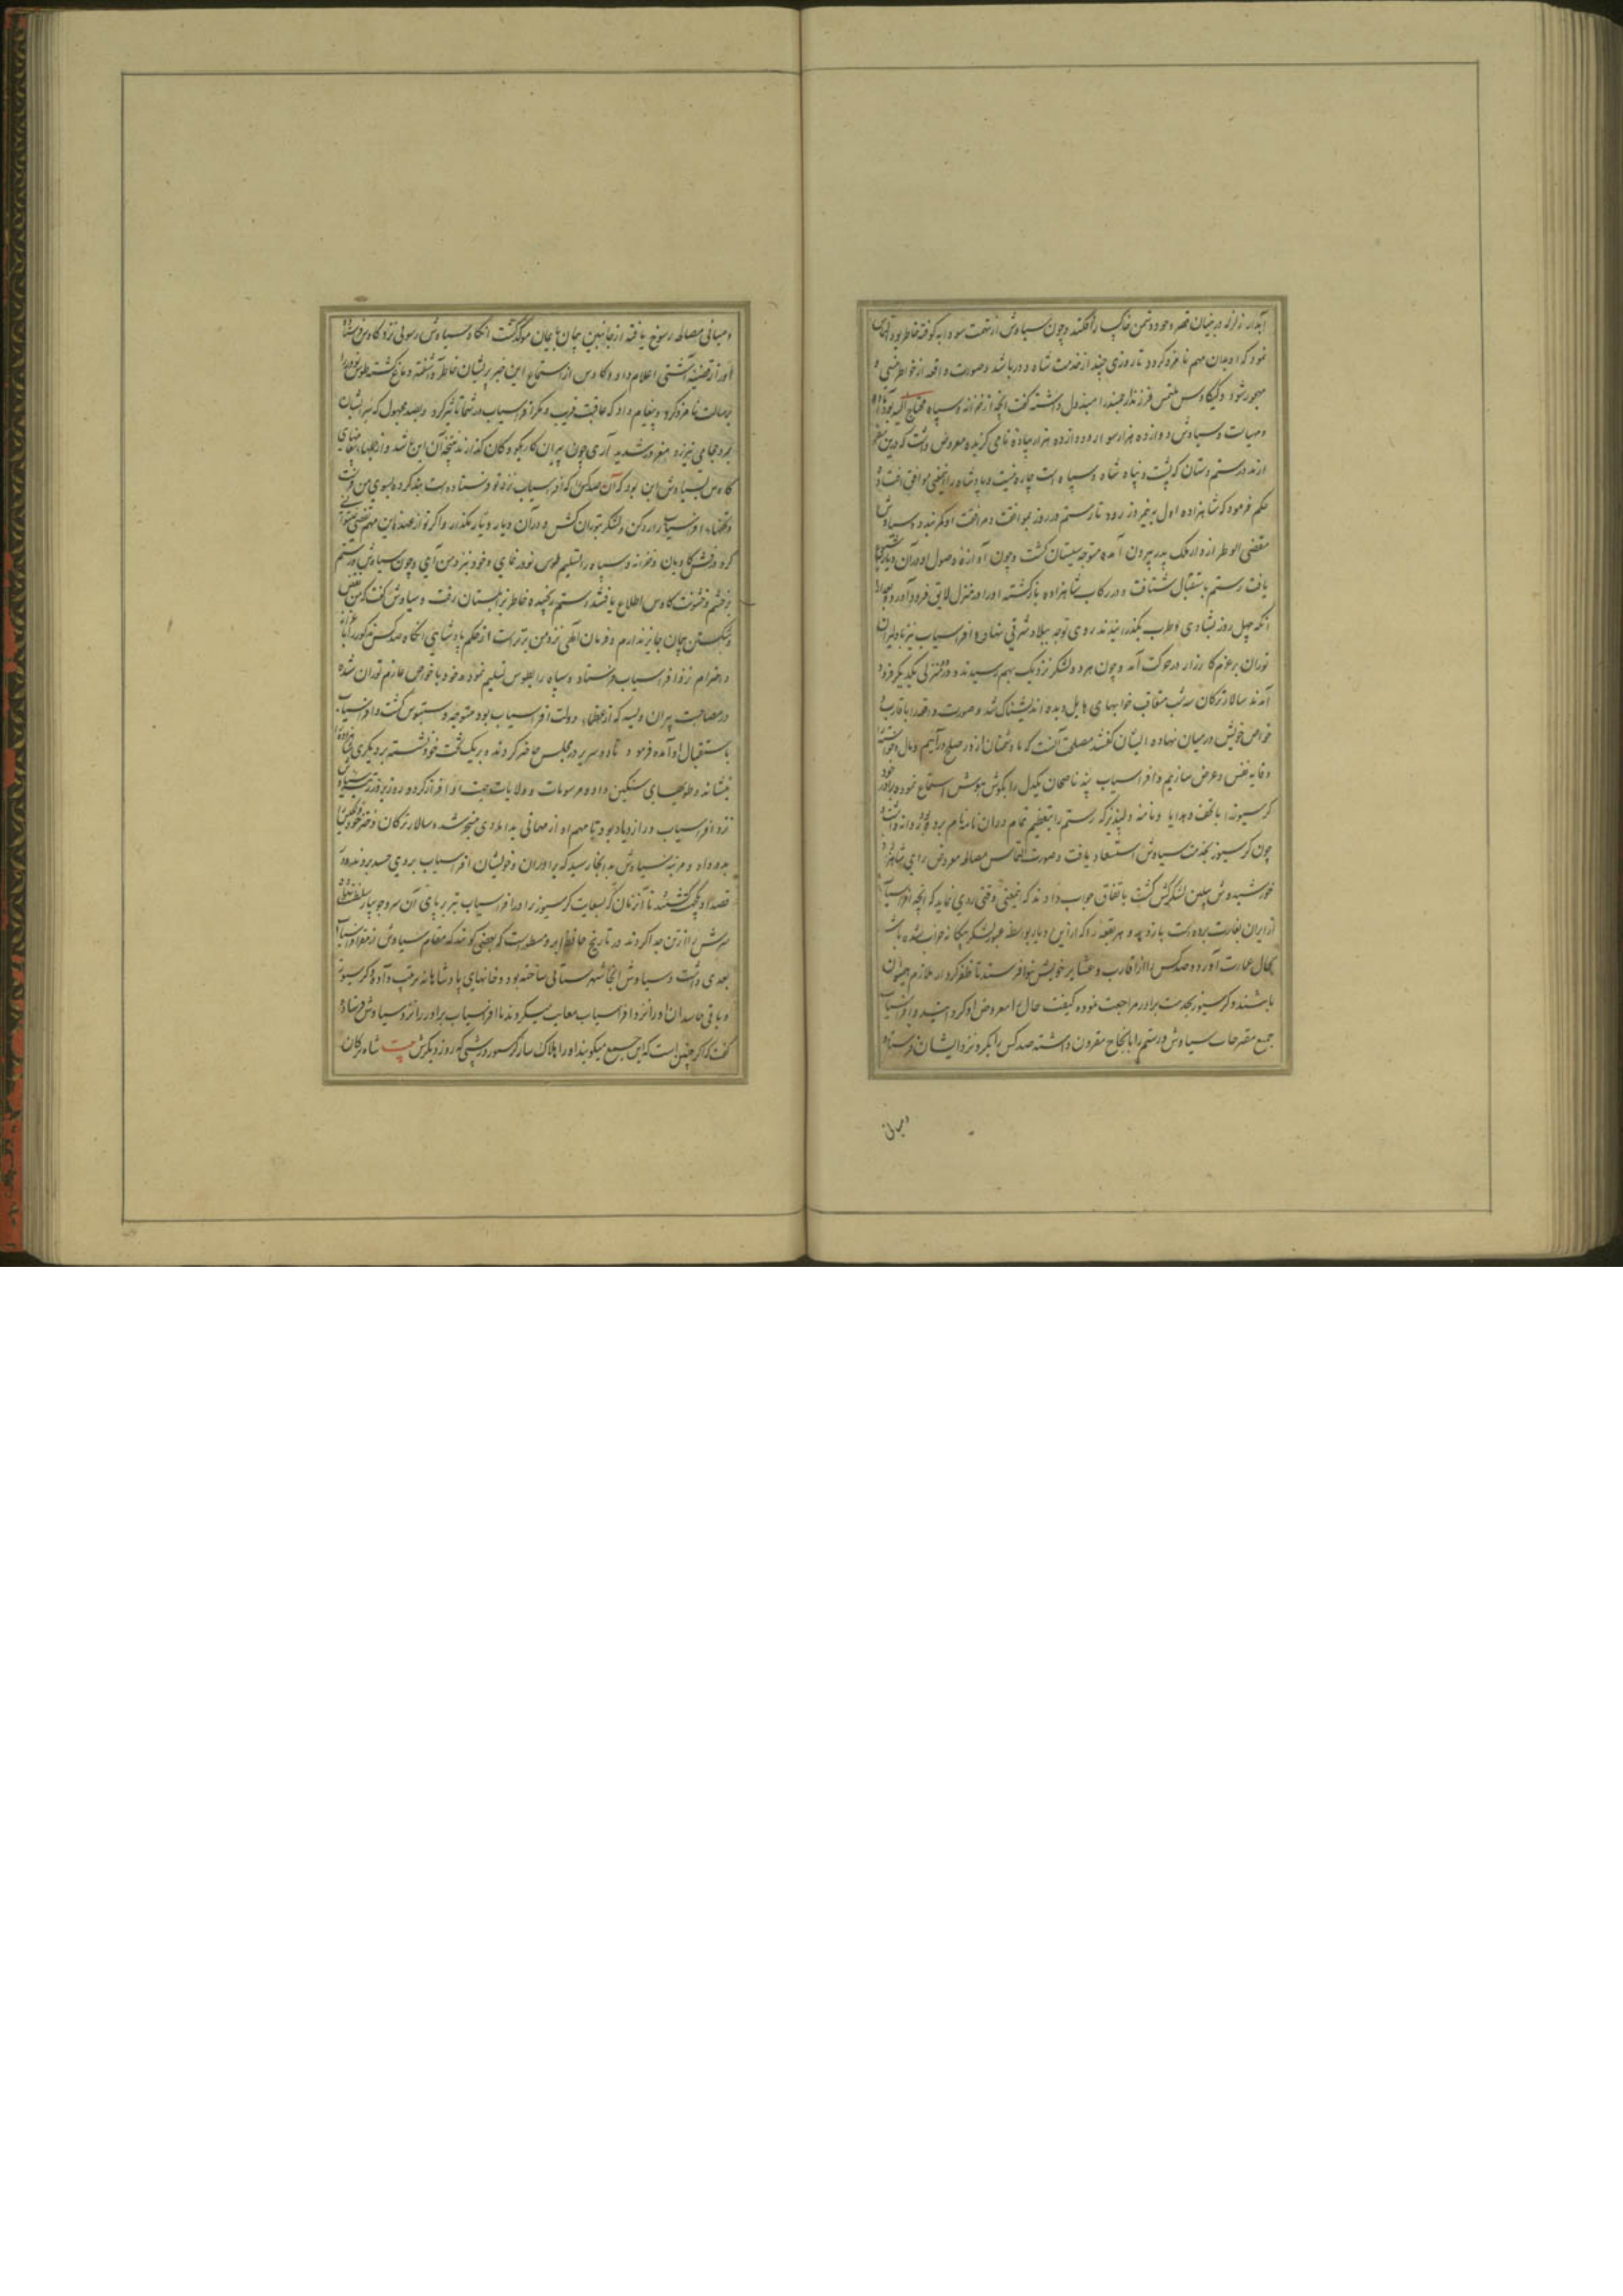 آبدار زلزله در بنیان قصر وجود دشمن خاکسار افکند و چون سیاوش از تهمت سودابه کوفته خاطر بود التماس
نمود که او بدان مهم نامزد کردد تا روزی چند از خدمت شاه دور باشد و صورت واقعه از خواطر منسی و
مهجور شود و کیکاوس ملتمس فرزند ارجمند را مبذول داشته کفت انچه از خزانه و سپاه محتاج الیه بود آماده
و مهیاست و سیاوش دوازده هزار سوار و دوازده هزار پیاده نامی کزیده معروض داشت که درین سفر
از ند رستم دستان که پشت و پناه شاه و سپاه است چاره نیست و پادشاه را این معنی موافق افتاده
حکم فرمود که شاهزاده اول به نیمروز رود تا رستم در روز بموافقت و مرافقت او کمر بندد و سیاوش
مقضی الوطر از دار ملک پدر بیرون آمده متوجه سیستان کشت و چون آوازه وصول او در آن دیار شیوع
یافت رستم باستقبال شتافت و در رکاب شاهزاده بازکشته او را در منزل لایق فرود آورد و بعد از
آنکه چهل روز بشادی و طرب بکذرانیدند روی توجه ببلاد شرقی نهادند و افراسیاب نیز با دلیران
توران برعزم کارزار در حرکت آمد و چون هر دو لشکر نزدیک بهم رسیدند و در منزلی یکدیکر فرود
آمدند سالار ترکان سه شب متعاقب خوابهای هایل دیده اندیشناک شد و صورت واقعه را با اقارب و
خواص خویش در میان نهاده ایشان کفتند مصلحت آنست که ما با دشمنان از در صلح درآییم و مال و خواسته
وقایه نفس و عرض سازیم و افراسیاب پند ناصحان یکدل را بکوش هوش استماع نموده برادر خود
کرسیوز را با تحف و هدایا و نامه دلپذیر که رستم را بتعظیم تمام در آن نامه نام برده بود روانه داشت و
چون کرسیوز بخدمت سیاوش استسعاد یافت و صورت التماس مصالحه معروض رای شاهزاده
خورشید وش پیلتن لشکرکش کشت باتفاق جواب دادند که این معنی وقتی روی نماید که انچه افراسیاب
از ایران بغارت برده است باز دهد و هر بقعه را که از این دیار بواسطه عبور لشکر بیکانه خراب شده باشد
بحال عمارت آورد و صد کس را از اقارب و عشایر خویش بنوا فرستد تا ظفر کردار ملازم همیون
باشند و کرسیوز بخدمت برادر مراجعت نموده کیفیت حال را معروض او کردانید و افراسیاب
جمیع مقترحات سیاوش و رستم را بانجاح مقرون داشته صد کس را بکرو نزد ایشان فرستاد
و مبانی
و مبانی مصالحه رسوخ یافته از جانبین پیمان بایمان موکد کشت آنکاه سیاوش رسولی نزد کاوس فرستاده
او را از قضیه آشتی اعلام داد و کاوس از استماع این خبر پریشان خاطر و آشفته دماغ کشته طوس نوذر را
برسالت نامزد کرد و پیغام داد که عاقبت فریب و مکر افراسیاب در شما تاثیر کرد و بصد مجهول که سر ایشان
بمرد حجامی نیرزد مغرور شدید آری چون پیران کار بکودکان کذارند نتیجه آن این باشد و از جمله پیغامهای
کاوس بسیاوش این بود که آن صد کس را که افراسیاب نزد تو فرستاده است بند کرده بسوی من فرست
و افراسیاب را رد کن و لشکر بتوران کش و در آن دیار دیار مکذار و اکر تو از عهده این مهم تفصی نمیتوانی
کرد درفش کاویان و خزانه و سپاه را تسلیم طوس نوذر نمای و خود نیز نزد من آی و چون سیاوش و رستم
بر خشم و خشونت کاوس اطلاع یافتند رستم رنجیده خاطر بزابلستان رفت و سیاوش کفت که من نقض
و شکستن پیمان جایز ندارم و فرمان الهی نزد من برترست از حکم پادشاهی آنکاه صد کس مذکور را باعزاز
و احترام نزد افراسیاب فرستاد و سپاه را بطوس تسلیم نمود و خود با خواص عازم توران شد و
در مصاحبت پیران ویسه که از عظماء دولت افراسیاب بود متوجه دستبوس کشت و افراسیاب
باستقبال او آمده فرمود تا دو سریر در مجلس حاضر کردند و بر یک تخت خود نشسته بر دیکری شاهزاده را
بنشاند و طویهای سنکین داد و مرسومات و ولایات جهت او افراز کرده روز بروز مرتبه سیاوش
نزد افراسیاب در ازدیاد بود تا مهم او از مهمانی بدامادی منجر شد و سالار ترکان دختر خود فرنکیس را
بدو داد و مرتبه سیاوش بدانجا رسید که برادران و خویشان افراسیاب بر وی حسد بردند و در
قصد او یکجهت کشتند تا آنزمان که بسعایت کرسیوز برادر افراسیاب تبر بر پای آن سرو جویبار سلطنت نهاده
سرش را از تن جدا کردند در تاریخ حافظ ابرو مسطورست که بعضی کویند که مقام سیاوش از مقر افراسیاب
بعدی داشت و سیاوش آنجا شهرستانی ساخته بود و خانهای پادشاهانه مرتب داده و کرسیوز
و باقی حاسدان او را نزد افراسیاب معایب میکردند تا افراسیاب برادر را نزد سیاوش فرستاده
کفت که اکر چنین است که این جمع میکویند او را هلاک ساز کرسیوز در شبی که روز دیکرش بیت شاه ترکان